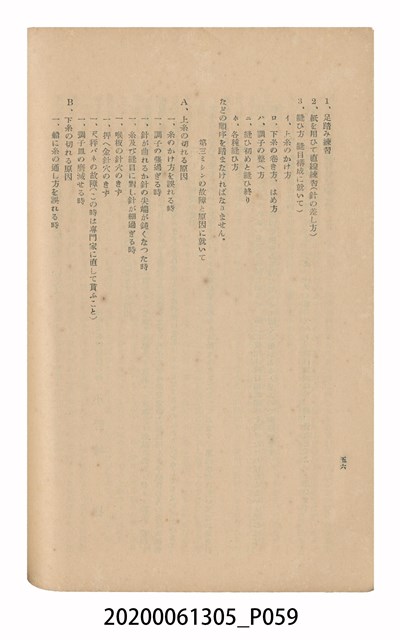 1、足踏み練習
2、紙を用ひて直線練習（針の差し方）
3、縫ひ方（縫目構成に就いて）
イ、上糸のかけ方
ロ、下糸の巻き方、はめ方
ハ、調子の整へ方
ニ、縫ひ初めと縫ひ終り
ホ、各種縫ひ方
などの順序を踏まなければなりません。
第三ミシンの故障と原因に就いて
A、上糸の切れる原因
一、糸のかけ方を誤れる時
一、調子の強過ぎる時
一、針が曲れるか針の尖端が鈍くなつた時
一、糸及び縫目に對し針が細過ぎる時
一、喉板の針穴のきず
一、押へ金針穴のきず
一、天秤バネの故障（この時は專門家に直して貰ふこと）
B、下糸の切れる原因
一、調子皿の磨減せる時
一、梭に糸の通し方を誤れる時
五六
20200061305_P059